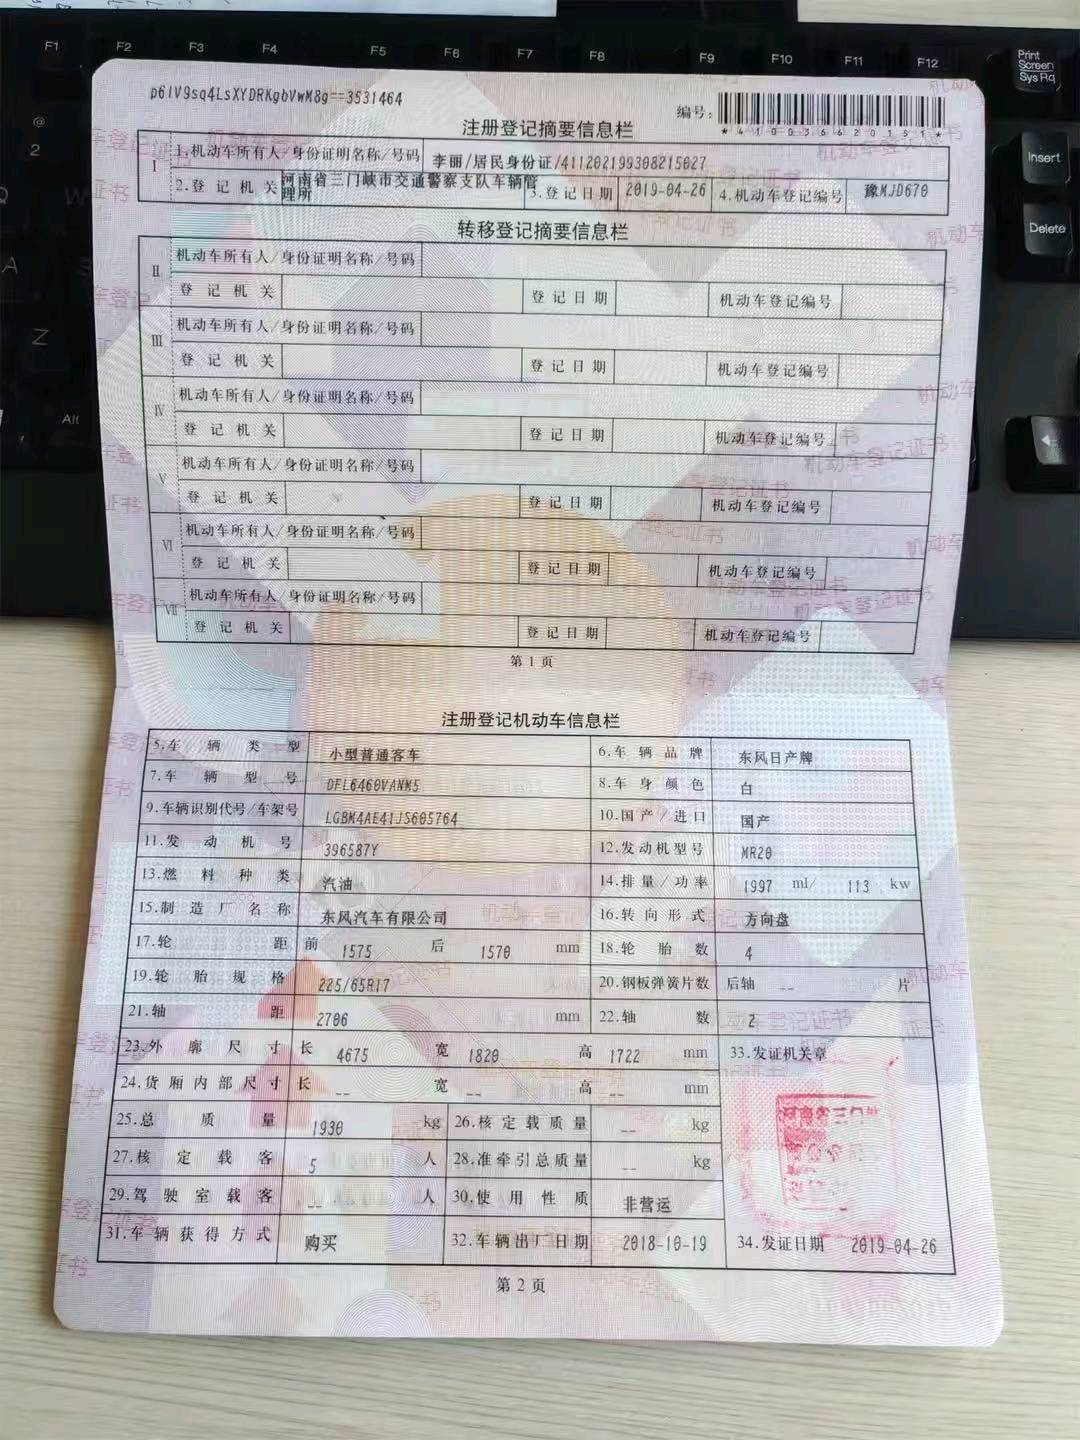 F1 F2 F3 F4 F5 F6 F7 F8 F9 F10 F11 F12 Print Screen SysRq
Insert
Delete
@
2
A
Z
Alt
p6lV9sq4LsXYDRKgbVwM8g==3531464
编号:
*410036620151*
注册登记摘要信息栏
I 1.机动车所有人/身份证明名称/号码 李丽/居民身份证/411202199308215027
2.登记机关 河南省三门峡市交通警察支队车辆管理所 3.登记日期 2019-04-26 4.机动车登记编号 豫MJD670
转移登记摘要信息栏
II 机动车所有人/身份证明名称/号码
登记机关 登记日期 机动车登记编号
III 机动车所有人/身份证明名称/号码
登记机关 登记日期 机动车登记编号
IV 机动车所有人/身份证明名称/号码
登记机关 登记日期 机动车登记编号
V 机动车所有人/身份证明名称/号码
登记机关 登记日期 机动车登记编号
VI 机动车所有人/身份证明名称/号码
登记机关 登记日期 机动车登记编号
VII 机动车所有人/身份证明名称/号码
登记机关 登记日期 机动车登记编号
第1页
注册登记机动车信息栏
5.车辆类型 小型普通客车 6.车辆品牌 东风日产牌
7.车辆型号 DFL6460VANM5 8.车身颜色 白
9.车辆识别代号/车架号 LGBM4AE41JS605764 10.国产/进口 国产
11.发动机号 396587Y 12.发动机型号 MR20
13.燃料种类 汽油 14.排量/功率 1997 ml/ 113 kw
15.制造厂名称 东风汽车有限公司 16.转向形式 方向盘
17.轮距 前 1575 后 1570 mm 18.轮胎数 4
19.轮胎规格 225/65R17 20.钢板弹簧片数 后轴 -- 片
21.轴距 2706 mm 22.轴数 2
23.外廓尺寸 长 4675 宽 1820 高 1722 mm 33.发证机关章
24.货厢内部尺寸 长 -- 宽 -- 高 -- mm
25.总质量 1930 kg 26.核定载质量 -- kg
27.核定载客 5 人 28.准牵引总质量 -- kg
29.驾驶室载客 -- 人 30.使用性质 非营运
31.车辆获得方式 购买 32.车辆出厂日期 2018-10-19 34.发证日期 2019-04-26
第2页